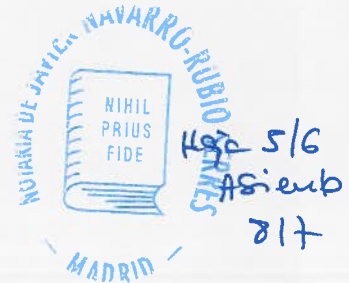 NOTARIA DE JAVIER NAVARRO-RUBIO
NIHIL
PRIUS
FIDE
MADRID
Hoja 5/6
Asiento